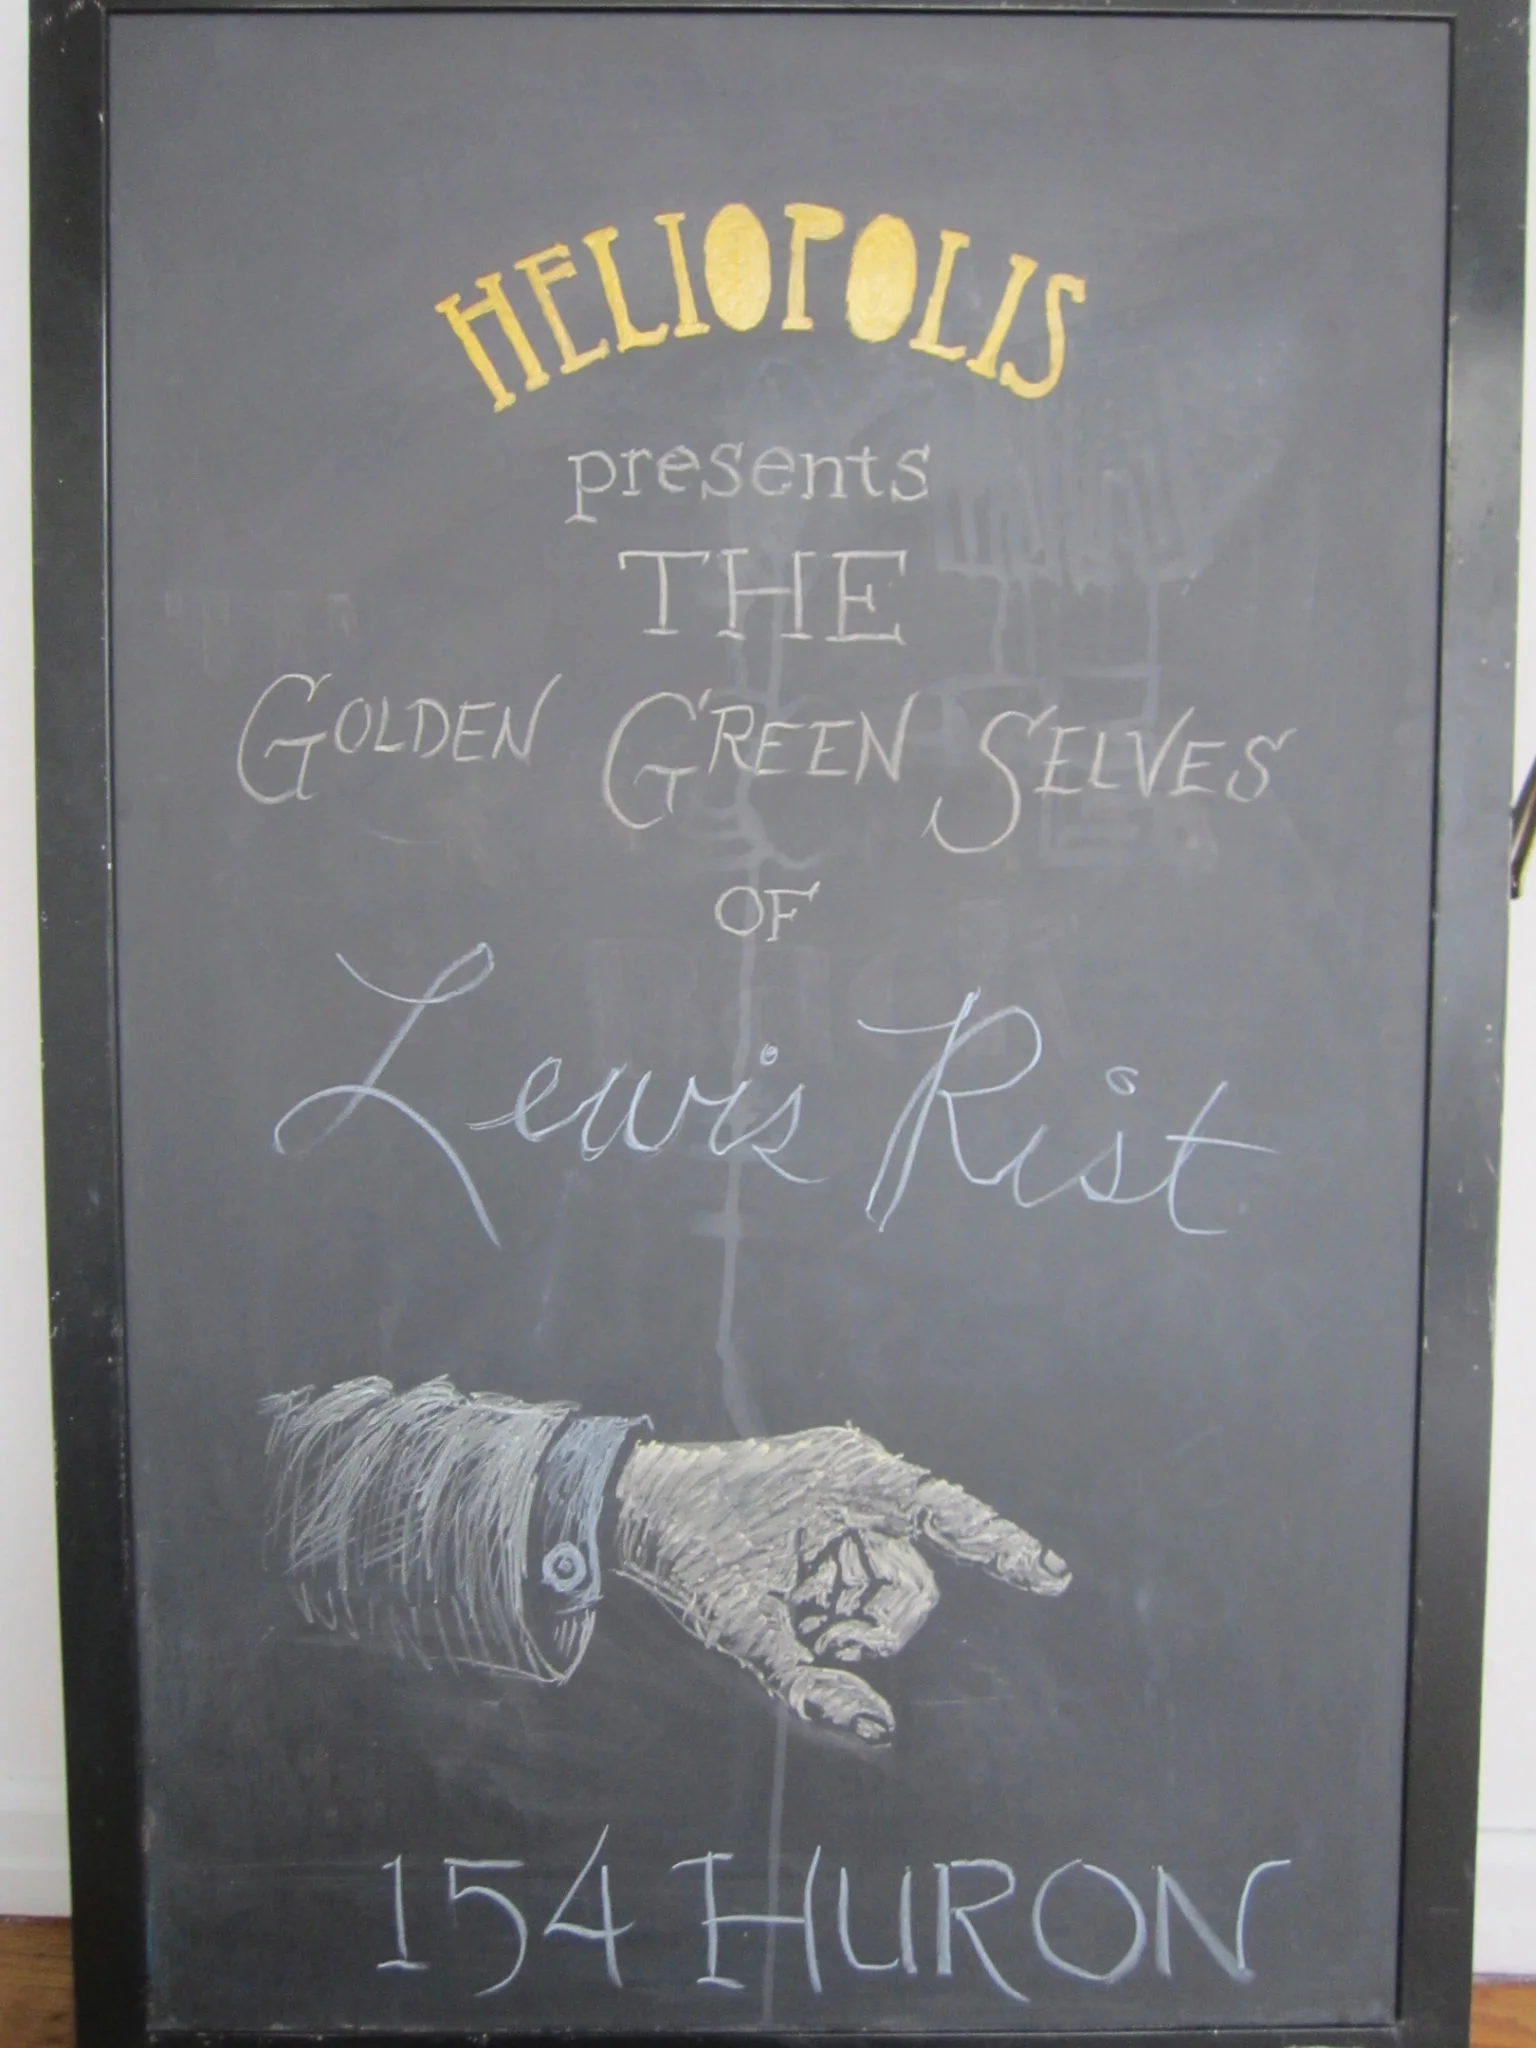 HELIOPOLIS
presents
THE
GOLDEN GREEN SELVES
OF
Lewis Rist
154 HURON